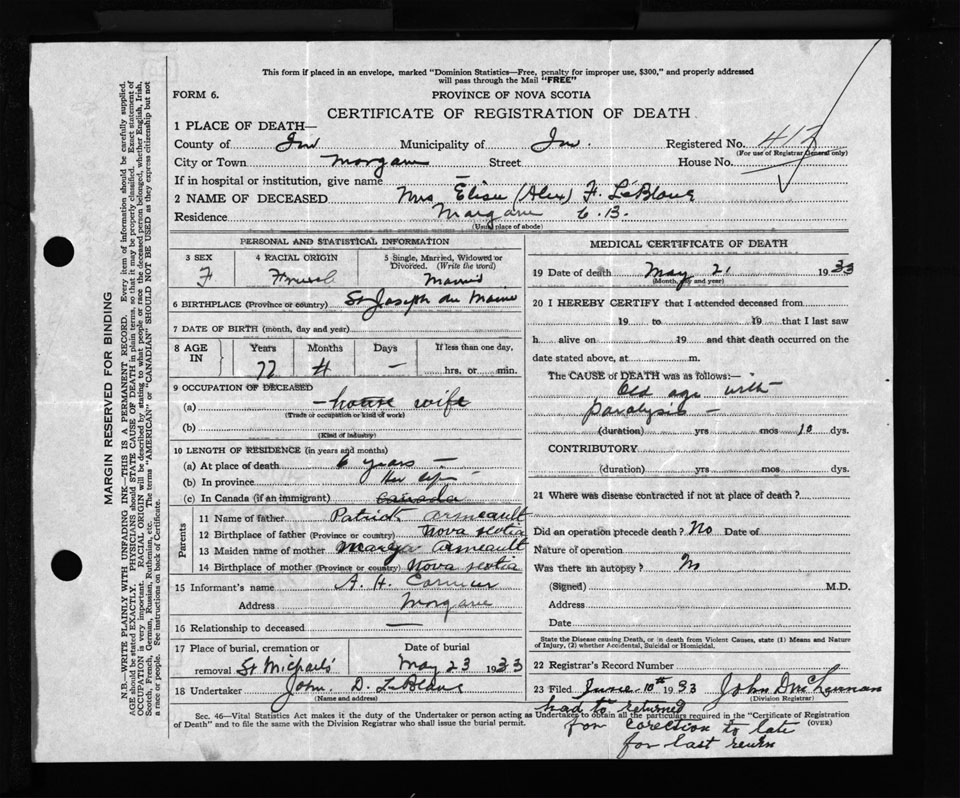 This form if placed in an envelope, marked "Dominion Statistics—Free, penalty for improper use, $300," and properly addressed
will pass through the Mail "FREE"
FORM 6.
PROVINCE OF NOVA SCOTIA
CERTIFICATE OF REGISTRATION OF DEATH
1 PLACE OF DEATH—
County of Inv Municipality of Inv. Registered No. 417
(For use of Registrar General only)
City or Town Margaree Street House No.
If in hospital or institution, give name —
2 NAME OF DECEASED Mrs Elise (Alex) F. LeBlanc
Residence Margaree C.B.
(Usual place of abode)
PERSONAL AND STATISTICAL INFORMATION
3 SEX 4 RACIAL ORIGIN 5 Single, Married, Widowed or Divorced. (Write the word)
F French Married
6 BIRTHPLACE (Province or country) St Joseph du Moine
7 DATE OF BIRTH (month, day and year)
8 AGE IN Years Months Days If less than one day,
77 4 — hrs. or min.
9 OCCUPATION OF DECEASED
(a) — house wife
(Trade or occupation or kind of work)
(b)
(Kind of industry)
10 LENGTH OF RESIDENCE (in years and months)
(a) At place of death 6 years —
(b) In province Her life
(c) In Canada (if an immigrant) Canada
Parents
11 Name of father Patrick
12 Birthplace of father (Province or country) Nova scotia
13 Maiden name of mother
14 Birthplace of mother (Province or country) Nova scotia
15 Informant's name A. H. Cormier
Address Margaree
16 Relationship to deceased —
17 Place of burial, cremation or removal St Michaels Date of burial May 23 1933
18 Undertaker John D. LeBlanc
(Name and address)
MEDICAL CERTIFICATE OF DEATH
19 Date of death May 21 1933
(Month, day and year)
20 I HEREBY CERTIFY that I attended deceased from
19 to 19 that I last saw
h alive on 19 and that death occurred on the
date stated above, at m.
The CAUSE of DEATH was as follows:—
Old age with
paralysis —
(duration) yrs mos 10 dys.
CONTRIBUTORY
(duration) yrs mos dys.
21 Where was disease contracted if not at place of death?
Did an operation precede death? No Date of
Nature of operation
Was there an autopsy? No
(Signed) M.D.
Address
Date
State the Disease causing Death, or in death from Violent Causes, state (1) Means and Nature
of Injury, (2) whether Accidental, Suicidal or Homicidal.
22 Registrar's Record Number
23 Filed June 10th 1933 John D McLennan
(Division Registrar)
Sec. 46—Vital Statistics Act makes it the duty of the Undertaker or person acting as Undertaker to obtain all the particulars required in the "Certificate of Registration
of Death" and to file the same with the Division Registrar who shall issue the burial permit. (OVER)
had to returned
for corection to late
for last reurn
MARGIN RESERVED FOR BINDING
N.B.—WRITE PLAINLY WITH UNFADING INK—THIS IS A PERMANENT RECORD. Every item of information should be carefully supplied.
AGE should be stated EXACTLY. PHYSICIANS should STATE CAUSE OF DEATH in plain terms, so that it may be properly classified. Exact statement of
OCCUPATION is very important. RACIAL ORIGIN will be described by stating to what people or race the deceased person belonged, whether English, Irish,
Scotch, French, German, Russian, Ruthenian, etc. The terms "AMERICAN" or "CANADIAN" SHOULD NOT BE USED as they express citizenship but not
a race or people. See instructions on back of Certificate.